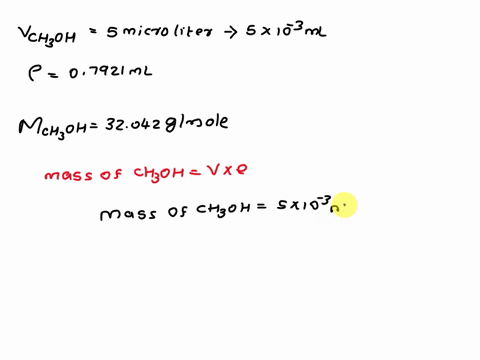 V CH₃OH = 5 microliter → 5 x 10⁻³ mL
ρ = 0.7921 mL
M CH₃OH = 32.042 g/mole
mass of CH₃OH = V x ρ
mass of CH₃OH = 5 x 10⁻³